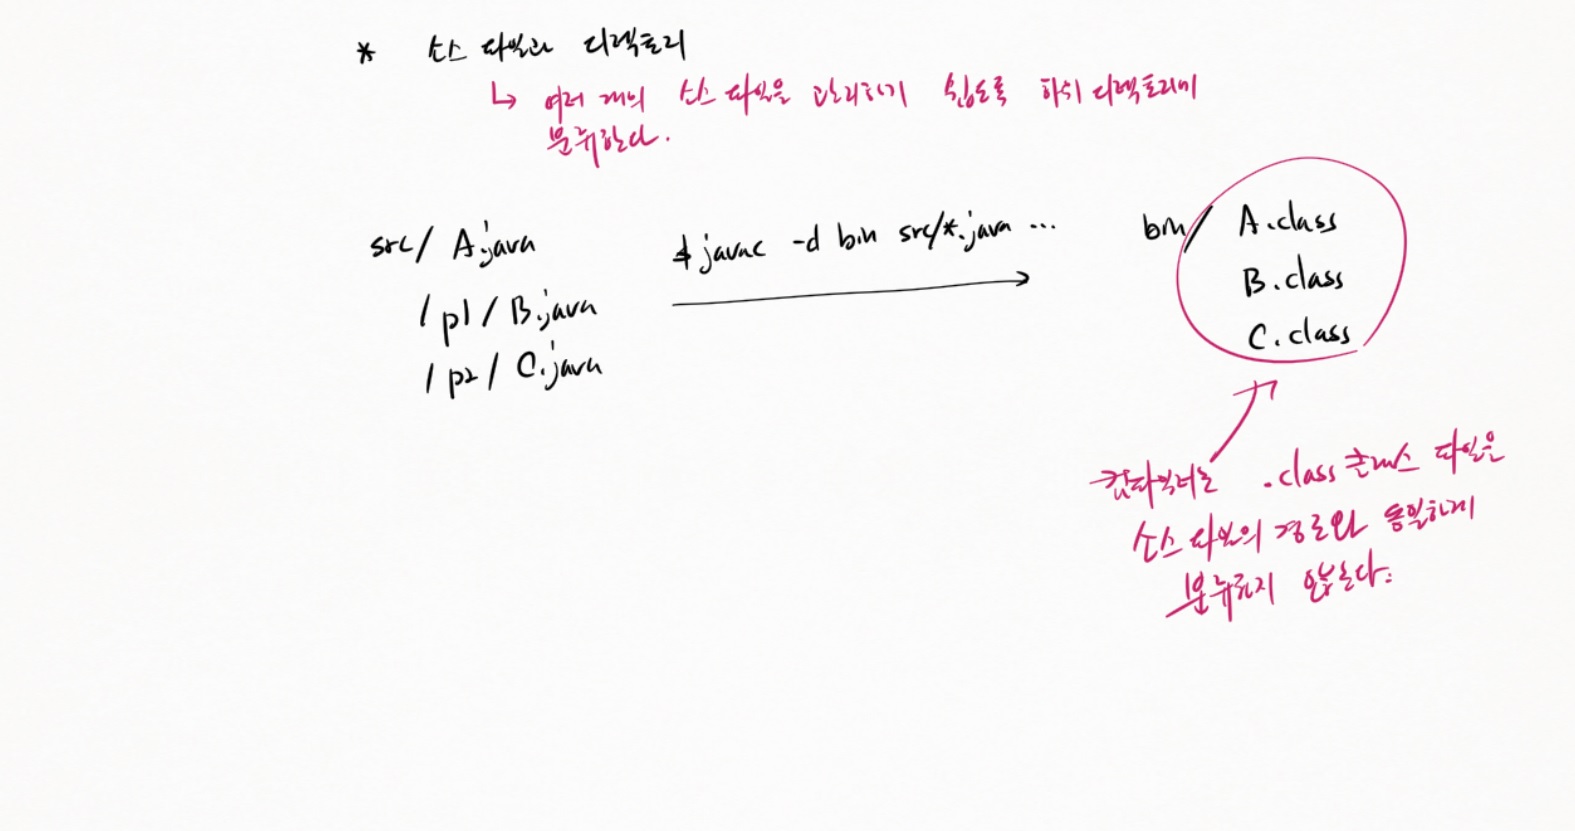 * 소스 파일과 디렉토리
↳ 여러 개의 소스 파일을 관리하기 쉽도록 하위 디렉토리에
분류한다.
src/ A.java
/ p1 / B.java
/ p2 / C.java
$ javac -d bin src/*.java ...
bin/ A.class
B.class
C.class
컴파일러는 .class 클래스 파일은
소스 파일의 경로와 동일하게
분류하지 않는다.